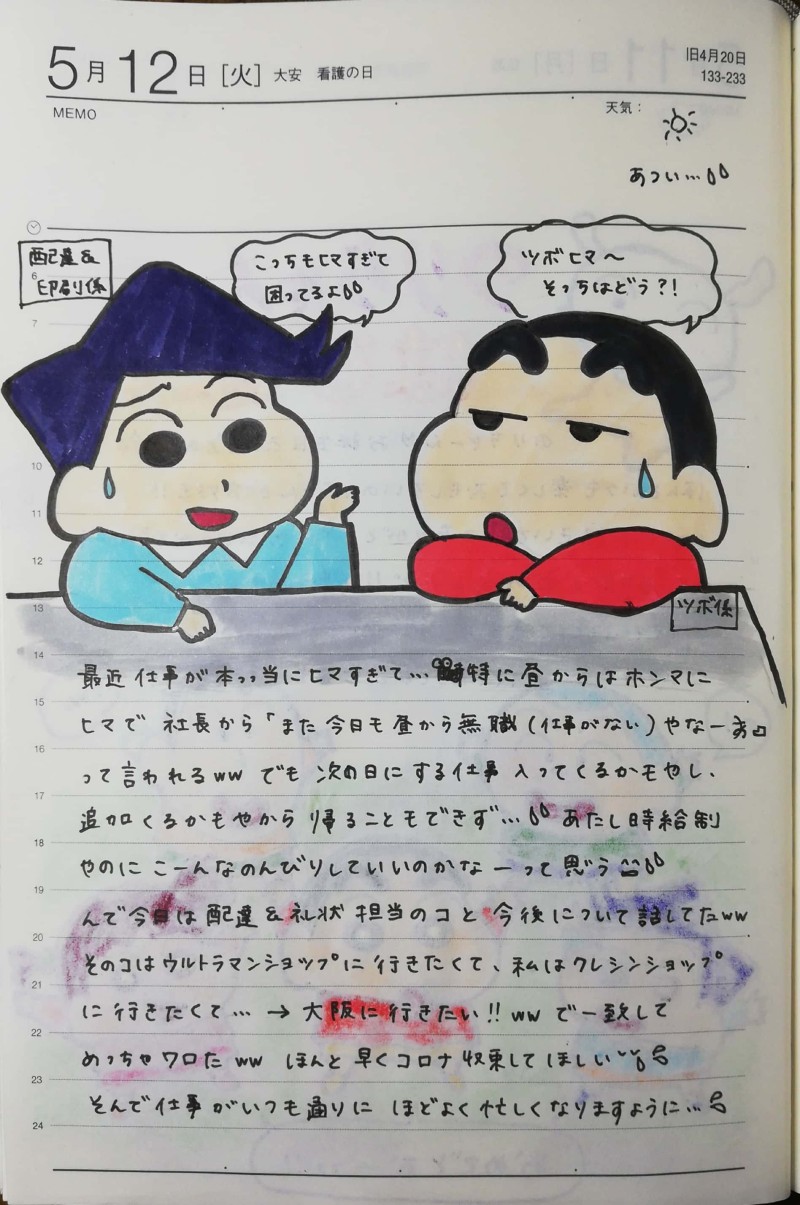 5月12日[火] 大安 看護の日
旧4月20日
133-233
MEMO
天気：
あつい…
配達&
印刷係
こっちもヒマすぎて
困ってるよ
ツボヒマ〜
そっちはどう？！
6
7
10
11
12
13
ツボ係
14
最近仕事が本っっ当にヒマすぎて… 特に昼からはホンマに
15
ヒマで 社長から「また今日も昼から無職(仕事がない)やなーあ」
16
って言われるww でも 次の日にする仕事 入ってくるかもやし、
17
追加くるかもやから 帰ることもできず…あたし時給制
18
やのに こーんなのんびりしていいのかなーって思う
19
んで今日は 配達&礼状 担当のコと 今後について話してたww
20
そのコはウルトラマンショップに行きたくて、私はクレシンショップ
21
に行きたくて… → 大阪に行きたい!! ww で一致して
22
めっちゃワロたww ほんと早くコロナ収束してほしい
23
そんで仕事がいつも通りに ほどよく忙しくなりますように…
24